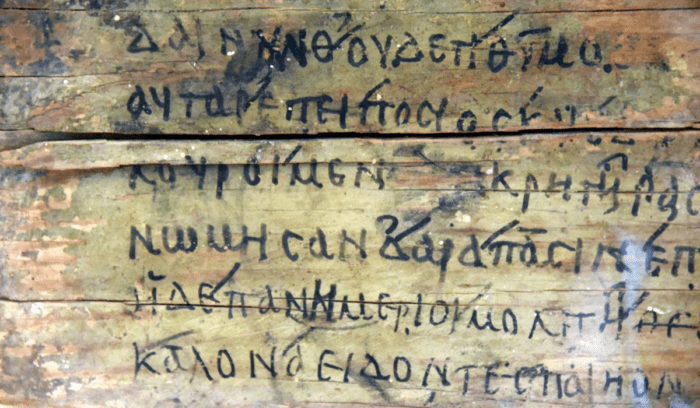 ΔΑΙΝΝΝΘΟΥΔΕΠΘΤΜΟ
ΑΥΤΑΡΕΠΕΙΠΟCΙΟCΚ
ΚΟΥΡΟΙΜΕΝ ΚΡΗΤΗΡΑC
ΝΩΜΗCΑΝΔΑΡΑΠΑCΙΝΕΠ
ΗΔΕΠΑΝΗΜΕΡΙΟΙΜΟΛΠΗΘΕ
ΚΑΛΟΝΑΕΙΔΟΝΤΕCΠΑΙΗΟΝ